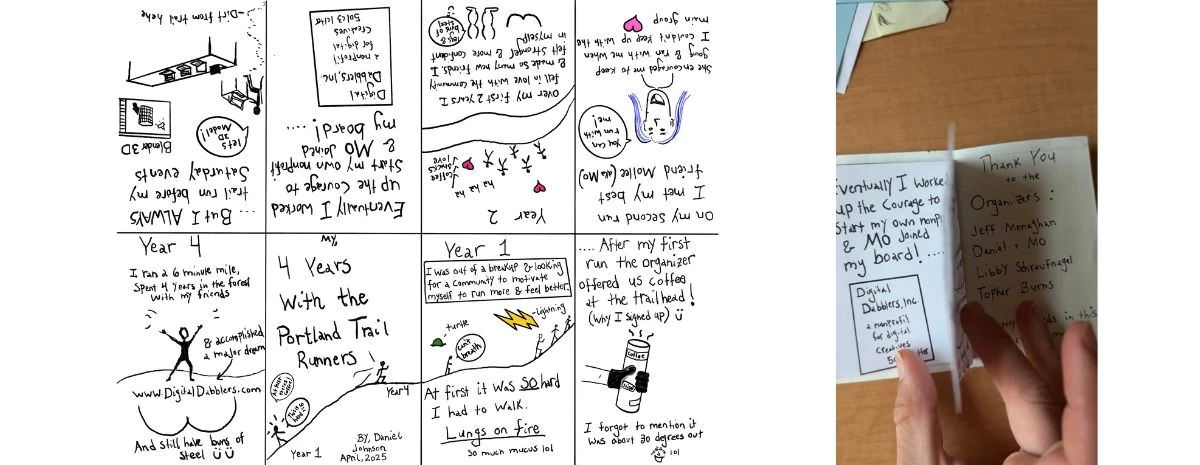 .... But I ALWAYS
trail run before my
Saturday events
Blender 3D
let's
3D
Model!
-Dirt from trail hehe
Eventually I worked
up the courage to
start my own nonprofit
& Mo Joined
my board! ....
Digital
Dabblers, Inc.
a nonprofit
for digital
Creatives
501c3 Letter
Year 2
coffee
snacks
love
ha ha
ha
over my first 2 years I
fell in love with the community
& made so many new friends. I
felt stronger & more confident
in myself
legs &
buns of
steel
On my second run
I met my best
friend Mollee (aka Mo)
You can
run with
me!
She encouraged me to keep
going & ran with me when
I couldn't keep up with the
main group
Year 4
I ran a 6 minute mile,
Spent 4 years in the forest
with my friends
& accomplished
a major dream
www.DigitalDabblers.com
And still have buns of
steel Ü Ü
My
4 Years
With the
Portland Trail
Runners
Year 4
Year 1
BY, Daniel
Johnson
April, 2025
Year 1
I was out of a breakup & looking
for a community to motivate
myself to run more & feel better.
turtle
-lightning
can't
breath
At first it was so hard
I had to walk.
Lungs on fire
So much mucus lol
.... After my first
run the organizer
offered us coffee
at the trailhead!
(why I signed up) Ü
Coffee
I forgot to mention it
was about 30 degrees out
lol
Eventually I worke
up the courage to
start my own nonp
& Mo Joined
my board! ....
Digital
Dabblers, Inc.
a nonprofit
for digital
Creatives
Thank You
to the
Organizers:
Jeff Monaghan
Daniel + MO
Libby Schraufnagel
Topher Burns
in this